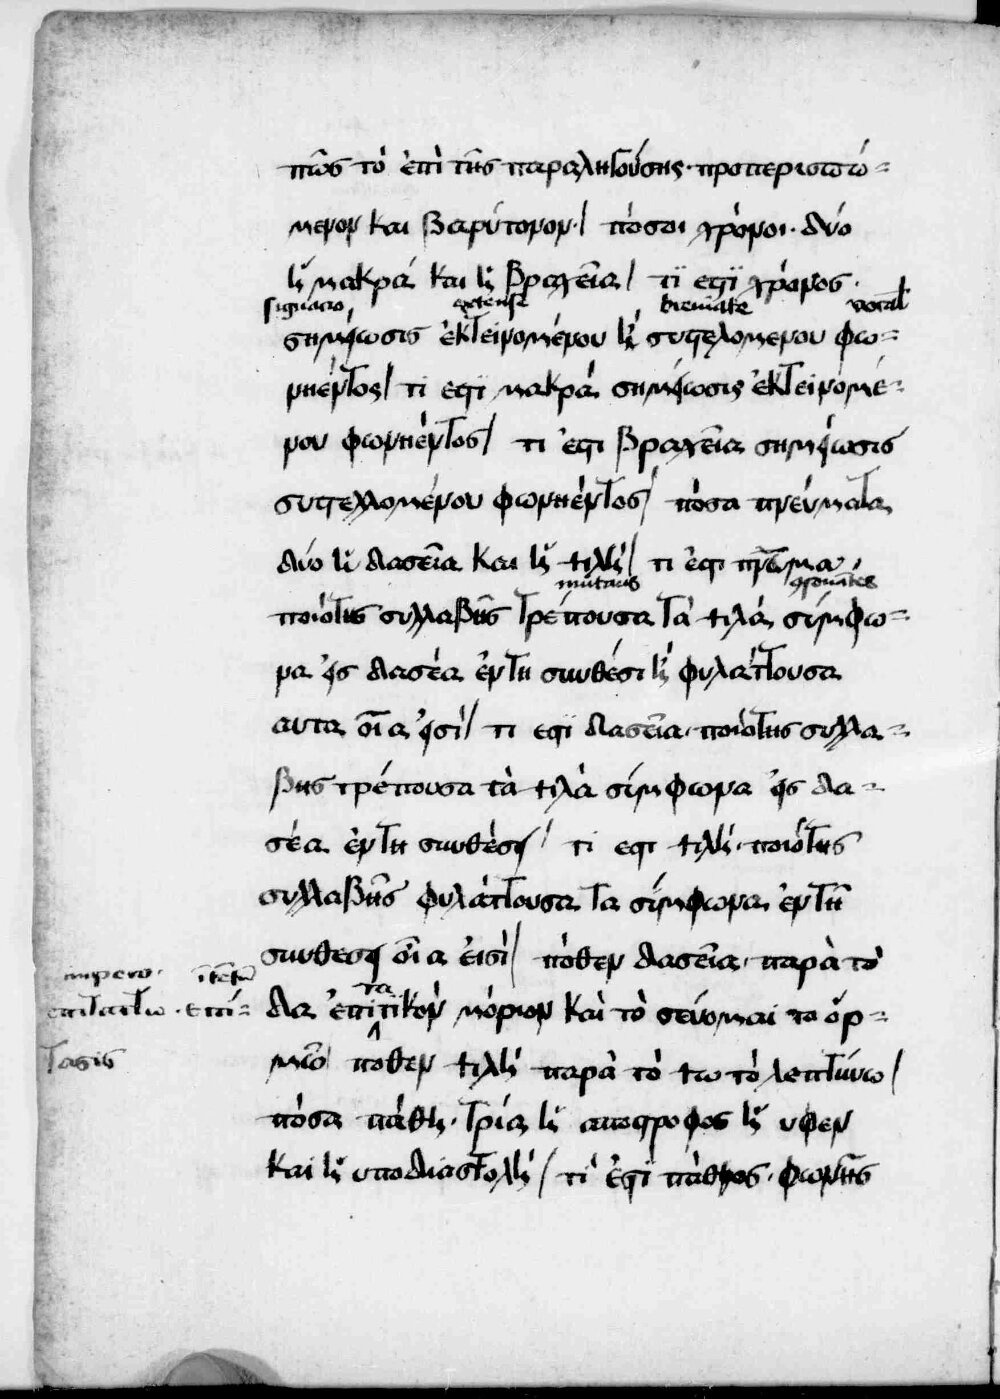 πῶς τὸ ἐπὶ τῆς παραληγούσης· προπερισπώ=
μενον και βαρύτονον·/ πόσοι χρόνοι· δύο
ἡ μακρά και ἡ βραχεῖα/ τί εστϊ χρόνος·
signatio extense breviate vocal
σημείωσις ἐκτεινομένου ἢ συστελομενου φω=
νήεντος/ τι εστϊ μακρά σημείωσις ἐκτεινομέ=
νου φωνήεντος/ τι ἐστι βραχεῖα σημείωσις
συστελλομένου φωνήεντος/ πόσα πνεύματα
δύο ἡ δασεῖα και ἡ ψιλή/ τι ἐστι πνεῦμα·
mutans
ποιότης συλλαβῆς τρέπουσα τὰ ψιλά σύμφω=
να εἰς δασέα ἐν τη συνθέσει ἢ φυλάττουσα
αυτα οἷα εἰσί/ τι εστϊ δασεῖα· ποιότης συλλα=
βης τρέπουσα τὰ ψιλὰ σύμφωνα εἰς δα=
σέα ἐν τη συνθέσει/ τι εστι ψιλή· ποιότης
συλλαβῆς φυλάττουσα τα σύμφωνα ἐν τῆ
συνθεσει οἷα εἰσὶ/ πόθεν δασεῖα· παρὰ τὸ
impero·
τα
δα ἐπιτικὸν μόριον καὶ τὸ σεύομαι το ὁρ=
επιτατω · επί=
μῶ/ ποθεν ψιλή παρὰ τὸ ψω τὸ λεπτύνω/
τασις
πόσα πάθη· τρία ἡ αποστροφος ἡ υφεν
και ἡ υποδιαστολή/ τί ἐστϊ πάθος· φωνῆς